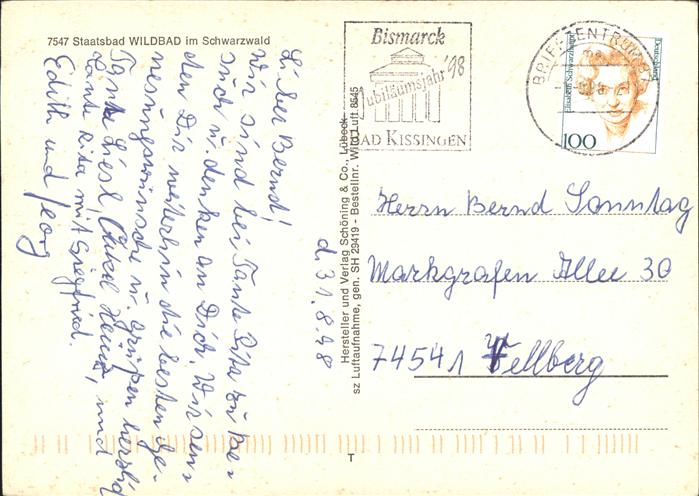 7547 Staatsbad WILDBAD im Schwarzwald
Lieber Bernd!
Wir sind bei Tante Rita zu Be-
such u. denken an Dich. Wir sen-
den Dir weiterhin die besten Ge-
nesungswünsche u. grüßen herzlich
Tante Liesl Onkel Heinz, und
Tante Rita mit Siegfried.
Edith und Georg
d. 31.8.98
Hersteller und Verlag Schöning & Co., Lübeck
sz Luftaufnahme, gen. SH 29419 - Bestellnr. Wild Luft 8545
Bismarck
Jubiläumsjahr '98
BAD KISSINGEN
BRIEFZENTRUM
Elisabeth Schwarzhaupt
Deutschland
100
Herrn Bernd Sonntag
Markgrafen Allee 30
74541 Vellberg
T